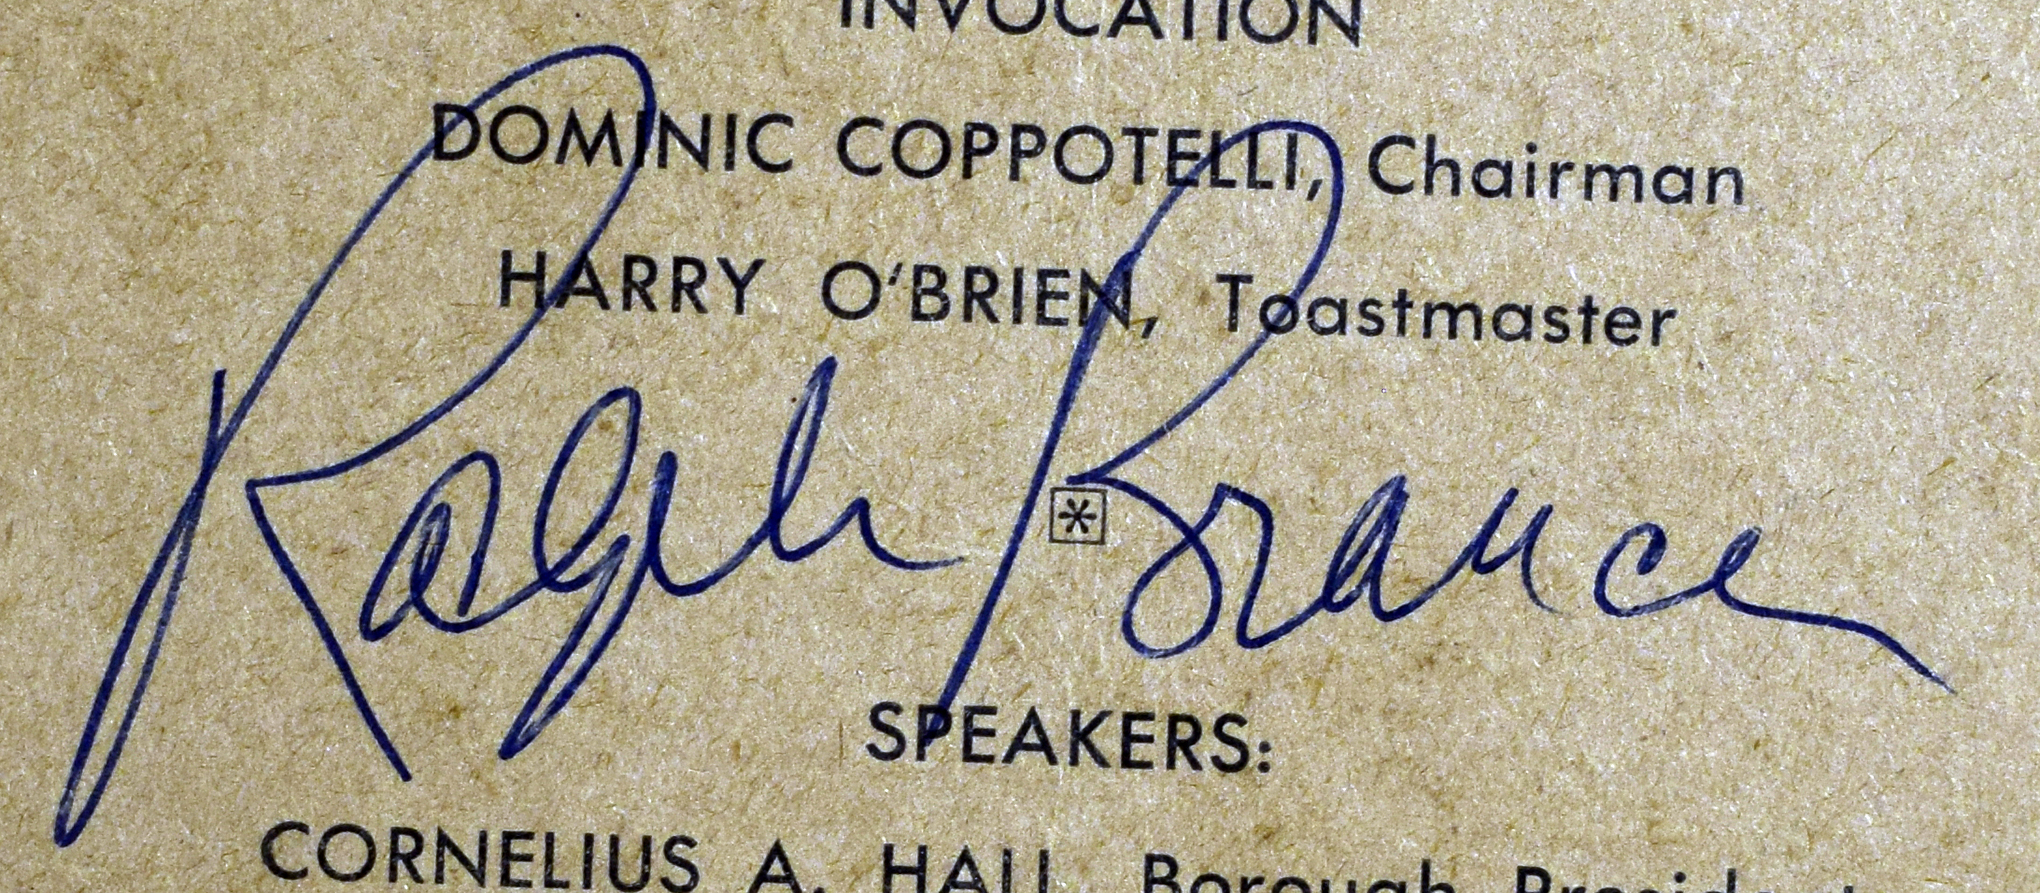 INVOCATION
DOMINIC COPPOTELLI, Chairman
HARRY O'BRIEN, Toastmaster
Ralph Branca
*
SPEAKERS:
CORNELIUS A. HALL, Borough President